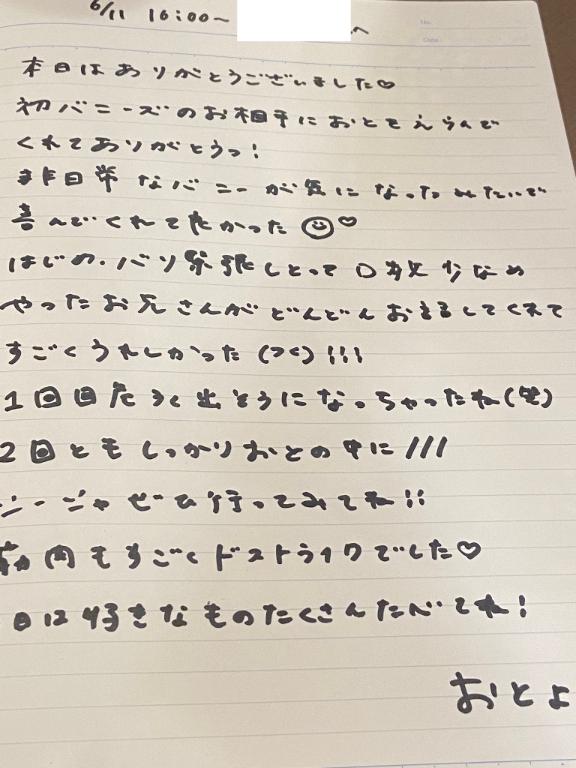 6/11 16:00〜 へ
本日はありがとうございました♡
初バニーズのお相手におとをえらんで
くれてありがとうっ!
非日常なバニーが気になったみたいで
喜んでくれてたかった ☺♡
はじめ、バリ緊張しとって口数少なめ
やったお兄さんがどんどんおまるしてくれて
すごくうれしかった(つ<)!!!
1回目 出そうになっちゃったね(笑)
2回ともしっかりおとの中に///
ジージャぜひ行ってみてね!!
もすごくドストライクでした♡
日は好きなものたくさんたべてね!
おとよ